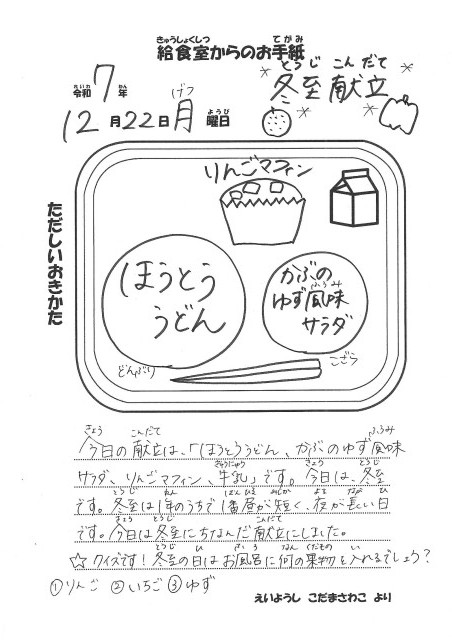 きゅうしょくしつ てがみ
給食室からのお手紙
とうじ こんだて
冬至献立
れいわ ねん
令和7年
げつ ようび
12月22日月曜日
ただしいおきかた
りんごマフィン
ほうとう
うどん
かぶの
ふうみ
ゆず風味
サラダ
どんぶり
こざら
きょう こんだて ふうみ
今日の献立は、「ほうとううどん、かぶのゆず風味
ぎゅうにゅう きょう とうじ
サラダ、りんごマフィン、牛乳」です。今日は、冬至
とうじ ねん ばんひる みじか よる なが ひ
です。冬至は1年のうちで1番昼が短く、夜が長い日
きょう とうじ こんだて
です。今日は冬至にちなんだ献立にしました。
とうじ ひ ふろ なん くだもの い
☆クイズです!冬至の日はお風呂に何の果物を入れるでしょう?
①りんご ②いちご ③ゆず
えいようし こだまさわこ より